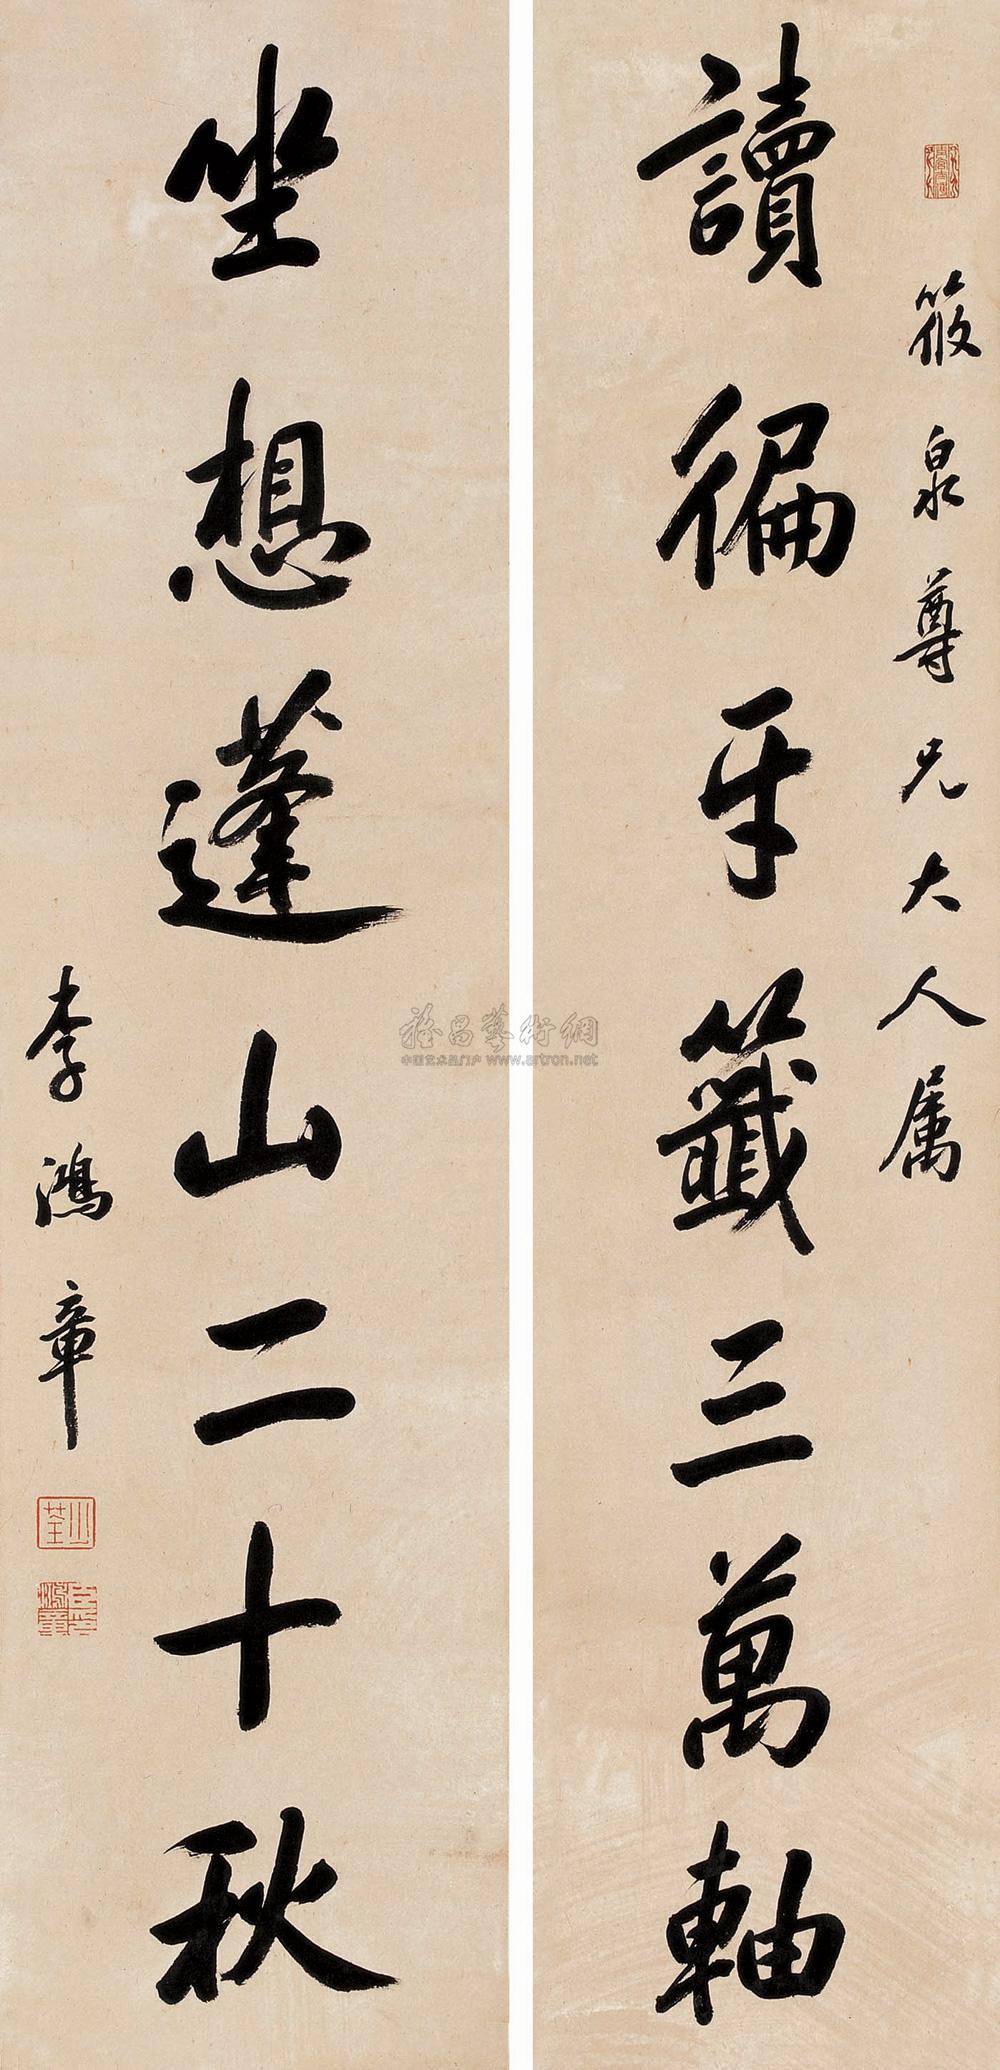 筱泉尊兄大人属
讀徧牙籤三萬軸
坐想蓬山二十秋
李鴻章
雅昌藝術網
中国艺术品门户 www.artron.net